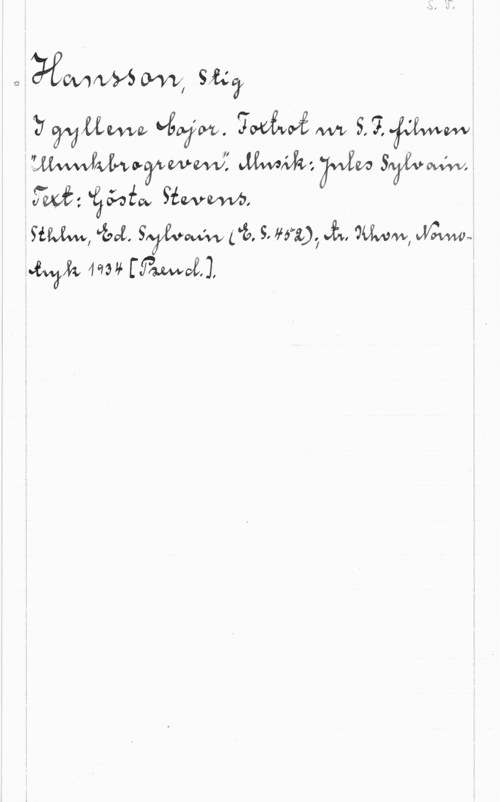 S. T.
Hansson, Stig
I gyllene bojor. Foxtrot ur S. F. filmen
"Munkbrogreven". Musik: Jules Sylvain.
Text: Gösta Stevens.
Sthlm, Ed. Sylvain (E. S. 452); tr. Khvn, Norno-
tryk 1934 [Pseud.].